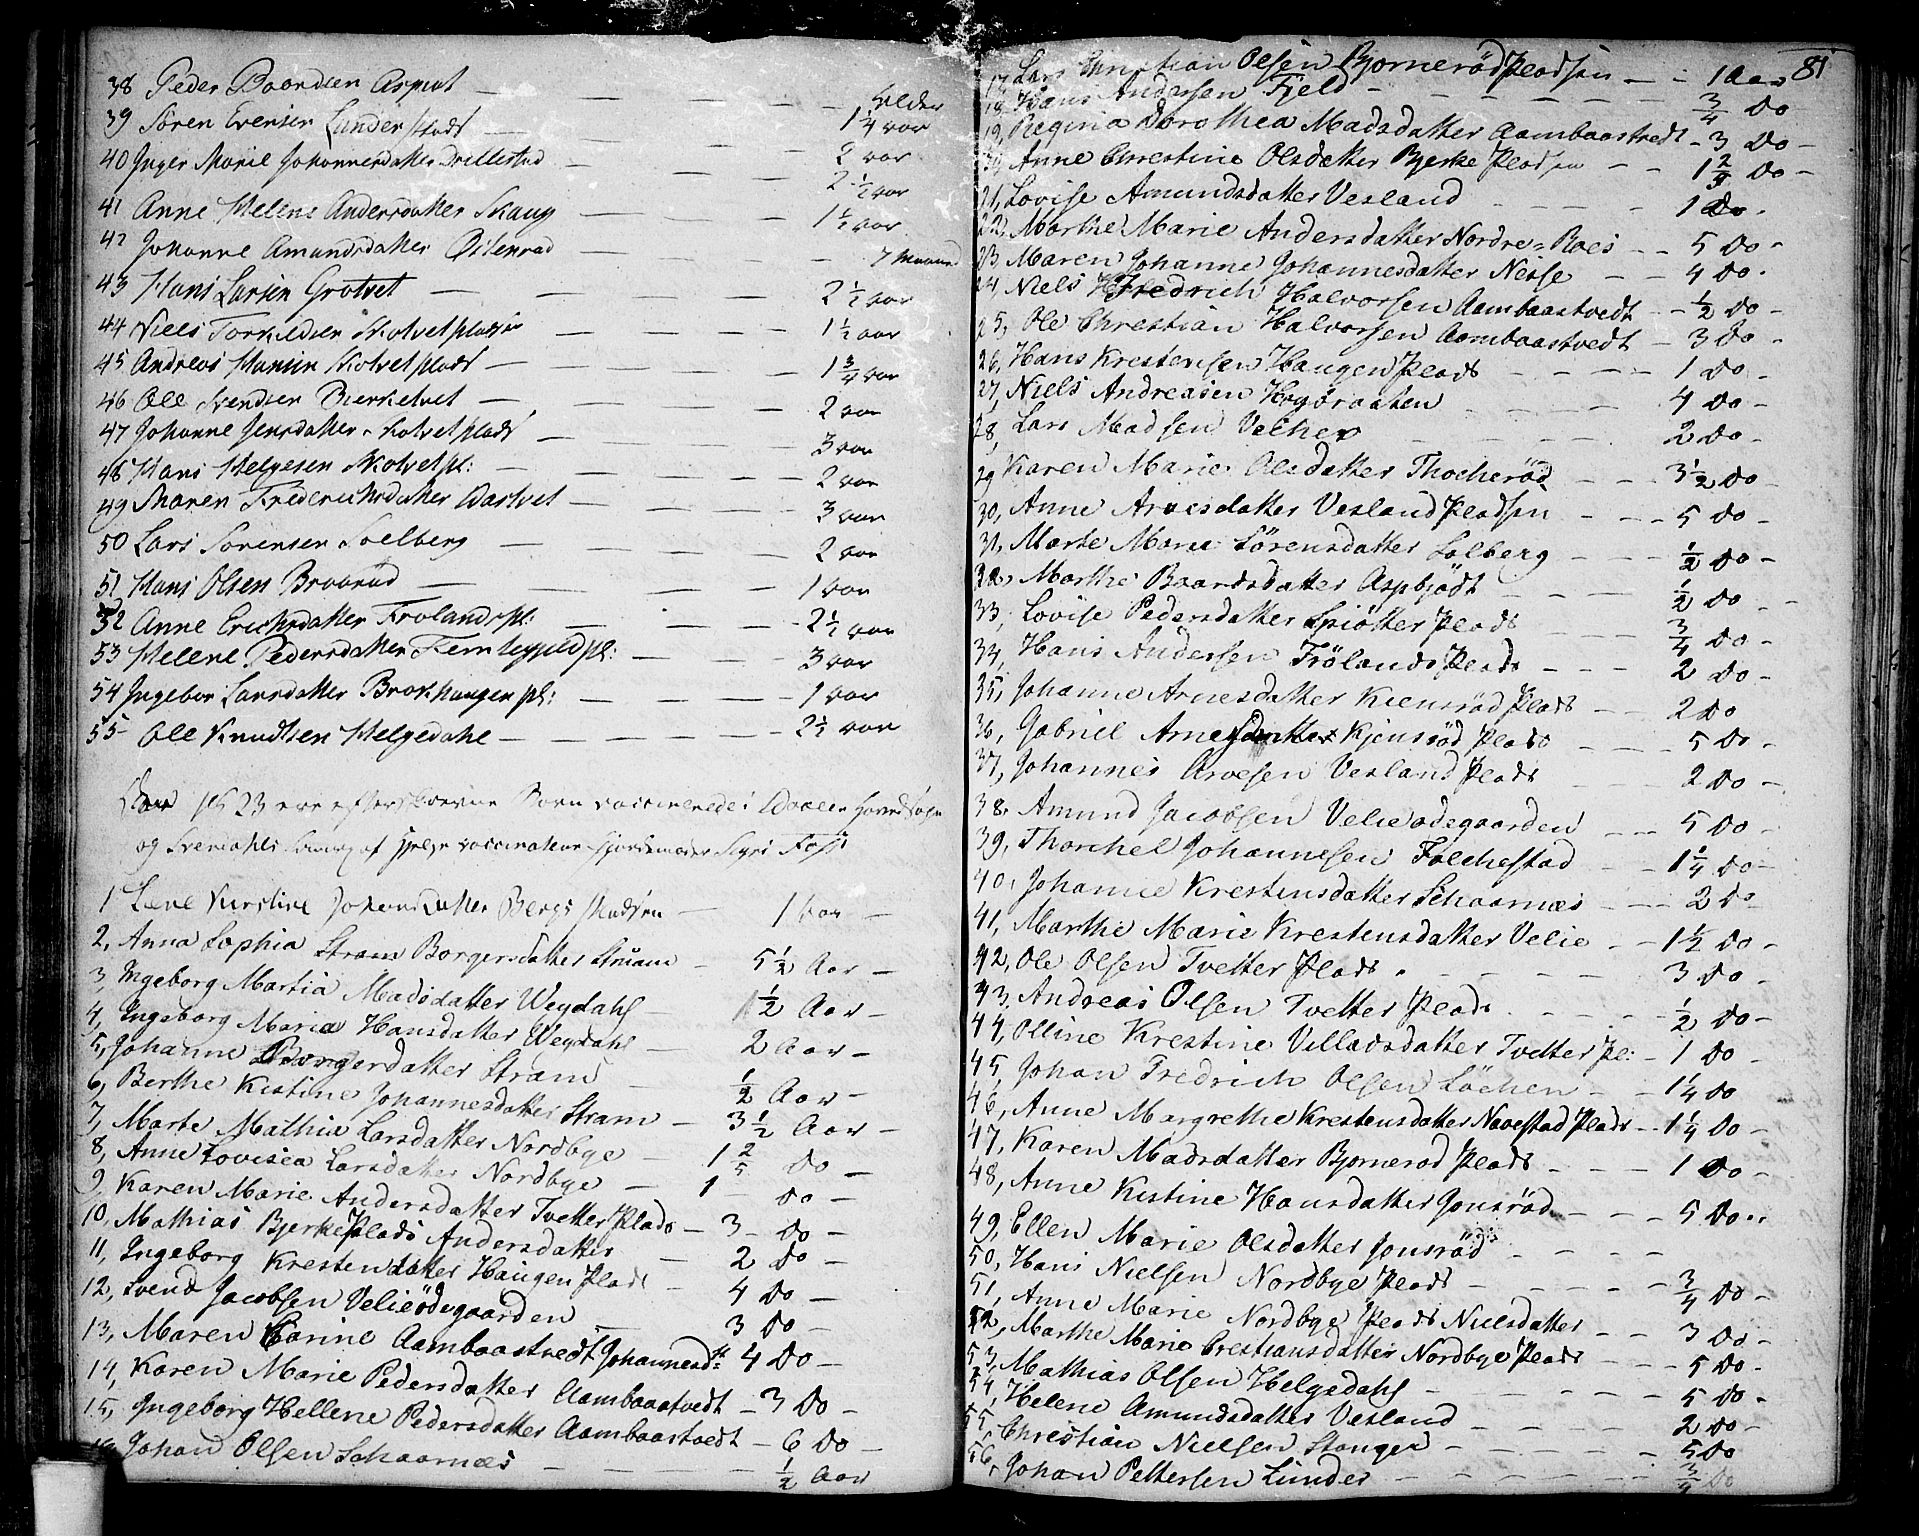 Alder
38 Peder Baardsen Asput — 1 1/4 aar
39 Sören Evensen Lunder Plads — 2 aar
40 Inger Marie Johannesdatter Drillestad — 2 1/2 aar
41 Anne Helene Andersdatter Skaug — 1 1/2 aar
42 Johanne Amundsdatter Östenrad — 7 Maaned
43 Hans Larsen Grotvet — 2 1/2 aar
44 Niels Torkildsen Skotvetpladsen — 1 1/2 aar
45 Andreas Hansen Skotvetplads — 1 3/4 aar
46 Ole Svendsen Bierketvet — 2 aar
47 Johanne Jensdatter Skotvetplads — 3 aar
48 Hans Helgesen Skotvetpl: — 2 aar
49 Maren Frederichsdatter Aastvet — 3 aar
50 Lars Sorensen Solberg — 2 aar
51 Hans Olsen Braarud — 1 aar
52 Anne Erichsdatter Frolandspl: — 2 1/2 aar
53 Helene Pedersdatter pl: — 3 aar
54 Ingebor Larsdatter Brokhaugen pl: — 1 aar
55 Ole Knudtsen Helgedahl — 2 1/2 aar
23 ere efterskrevne Born vaccinerede i Hovedsogn
og Svendahls af Hjelpe vaccinateur Gjordemoder Sigri Foss
1 Lene Kirstine Johansdatter Bergs Pladsen — 1 Aar —
2, Anna Sophia Borgersdatter Stram — 5 1/2 Aar —
3, Ingeborg Martia Madsdatter Weydahl — 1 1/2 Aar —
4, Ingeborg Maria Hansdatter Weydahl — 2 Aar —
5, Johanne Borgerdatter Stram — 1/2 Aar —
6, Berthe Kistine Johannesdatter Stram — 3 1/2 Aar —
7, Marte Mathia Larsdatter Nordbye — 1 2/5 Do —
8, Anne Lovisea Larsdatter Nordbye — 1 Do —
9, Karen Marie Andersdatter Tvetter Plads — 3 Do —
10, Mathias Bjerke Plads Andersdatter — 2 Do —
11, Ingeborg Krestendatter Haugen Plads — 4 Do —
12, Svend Jacobsen Velieödegaarden — 3 Do —
13, Maren Carine Aambaastvedt Johannesdtr 4 Do —
14, Karen Marie Pedersdatter Aambaastvedt — 3 Do —
15, Ingeborg Hellene Pedersdatter Aambaastvedt — 6 Do —
16, Johan Olsen Schaarnæs — 1/2 Aar
81
17, Lars Christian Olsen Bjornerød Pladsen — 1 Aar
18, Hans Andersen Fjeld — 3/4 Do
19, Regina Dorothea Madsdatter Aambaastvedt — 3 Do —
20, Anne Chrestine Olsdatter Bjerke Pladsen — 1 2/3 Do —
21, Lovise Amundsdatter Vesland — 1 Do.
22, Marthe Marie Andersdatter Nordre-Roes — 5 Do —
23, Maren Johanne Johannesdatter Nesse — 4 Do.
24, Niels Fredrich Halvorsen Aambaastvedt — 1/2 Do —
25, Ole Chrestian Halvorsen Aambaastvedt — 3 Do —
26, Hans Krestensen Haugen Plads — 1 Do —
27, Niels Andreasen Hogøraaten — 4 Do —
28, Lars Madsen — 2 Do —
29 Karen Marie Olsdatter Thocherød — 3 1/2 Do —
30, Anne Arnesdatter Vesland Pladsen — 5 Do —
31, Marte Marie Sörensdatter Solberg — 1/2 Do —
32, Marthe Baardsdatter Aspbjødt — 1/2 Do —
33, Lovise Pedersdatter Spiötter Plads — 3/4 Do —
34, Hans Andersen Frölands Plads — 2 Do —
35, Johanne Arnesdatter Kiensröd Plads — 2 Do
36, Gabriel Kjensröd Plads — 5 Do —
37, Johannes Arvesen Vesland Plads — 2 Do —
38, Amund Jacobsen Velieødegaarden — 5 Do —
39, Thorchel Johannesen Folchestad — 1 1/4 Do —
40, Johanne Krestensdatter Schaarnæs — 2 Do
41, Marthe Marie Krestensdatter Velie — 1 1/2 Do —
42, Ole Olsen Tvetter Plads — 3 Do —
43, Andreas Olsen Tvetter Plads — 1/2 Do —
44, Olline Krestine Villadsdatter Tvetter Pl: — 1 Do —
45, Johan Fredrich Olsen Löchen — 1 1/4 Do
46, Anne Margrethe Krestensdatter Navestad Plads — 1 1/4 Do —
47, Karen Madsdatter Bjornerød Plads — 1 Do
48, Anne Kistine Hansdatter Jonsrød — 5 Do
49, Ellen Marie Olsdatter Jonsrød
50, Hans Nielsen Nordbye Plads — 3/4 Do —
51, Anne Marie Nordbye Plads Nielsdatter — 3 Do —
52, Marthe Marie Crestiansdatter Nordbye Plads — 5 Do —
53, Mathias Olsen Helgedahl — 5 Do —
54, Helene Amundsdatter Vesland — 2 Do —
55, Christian Nielsen Stanger — 5 Do
56, Johan Pettersen Lunder — 3/4 Do